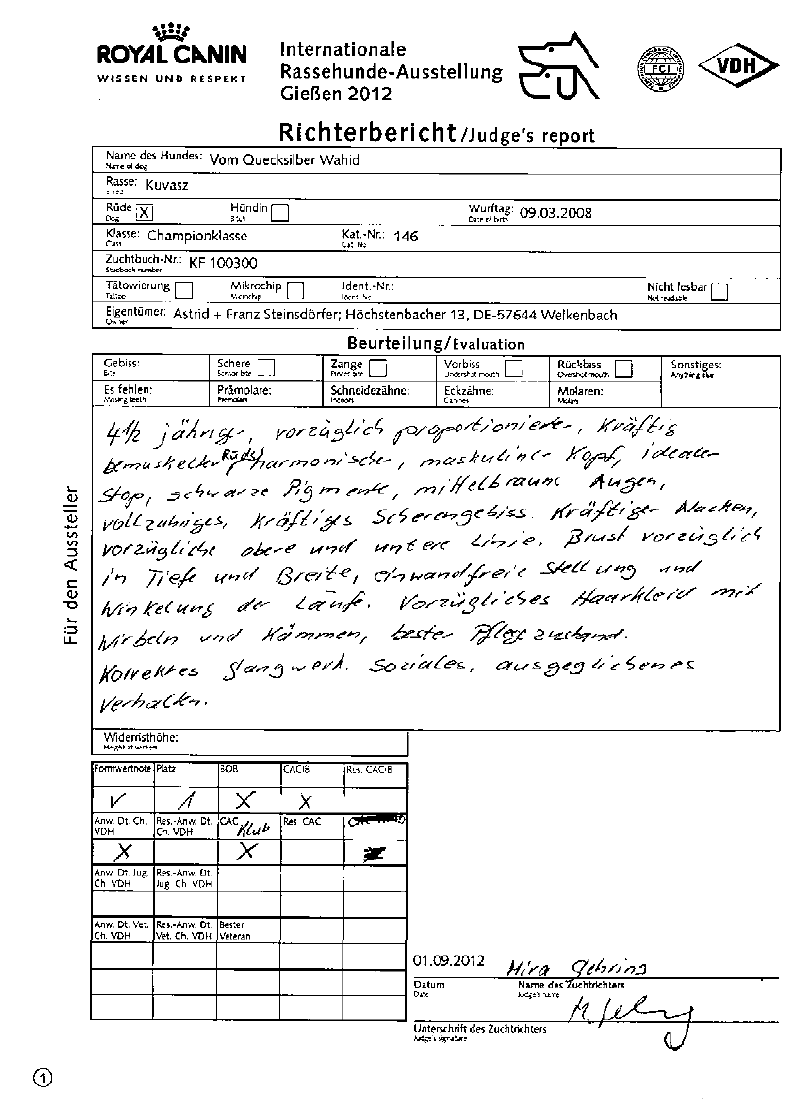 ROYAL CANIN
WISSEN UND RESPEKT
Internationale
Rassehunde-Ausstellung
Gießen 2012
FCI
VDH
Richterbericht/Judge's report
Name des Hundes: Vom Quecksilber Wahid
Name of dog
Rasse: Kuvasz
Rüde X Hündin Wurftag: 09.03.2008
Dog Date of birth
Klasse: Championklasse Kat.-Nr.: 146
Class Cat. No
Zuchtbuch-Nr.: KF 100300
Studbook number
Tätowierung Mikrochip Ident.-Nr.: Nicht lesbar
Tattoo Microchip Ident. No Not readable
Eigentümer: Astrid + Franz Steinsdörfer; Höchstenbacher 13, DE-57644 Welkenbach
Owner
Beurteilung/Evaluation
Gebiss: Schere Zange Vorbiss Rückbiss Sonstiges:
Bite Scissor bite Pincer bite Undershot mouth Overshot mouth Anything else
Es fehlen: Prämolare: Schneidezähne: Eckzähne: Molaren:
Missing teeth Premolars Incisors Canines Molars
4 1/2 jähriger, vorzüglich proportionierter, kräftig
bemuskelter Rüde, harmonischer, maskuliner Kopf, idealer
Stop, schwarze Pigmente, mittelbraune Augen,
vollzahniges, kräftiges Scherengebiss. Kräftiger Nacken,
vorzügliche obere und untere Linie. Brust vorzüglich
in Tiefe und Breite, einwandfreie Stellung und
Winkelung der Läufe. Vorzügliches Haarkleid mit
Wirbeln und Kämmen, bester Pflegezustand.
Korrektes Gangwerk. Soziales, ausgeglichenes
Verhalten.
Für den Aussteller
Widerristhöhe:
Formwertnote Platz BOB CACIB Res. CACIB
V 1 X X
Anw. Dt. Ch. VDH Res.-Anw. Dt. Ch. VDH CAC Klub Res. CAC
X X
Anw. Dt. Jug. Ch. VDH Res.-Anw. Dt. Jug. Ch. VDH
Anw. Dt. Vet. Ch. VDH Res.-Anw. Dt. Vet. Ch. VDH Bester Veteran
01.09.2012 Gehring
Datum Name des Zuchtrichters
Date Judge's name
Unterschrift des Zuchtrichters
Judge's signature
1